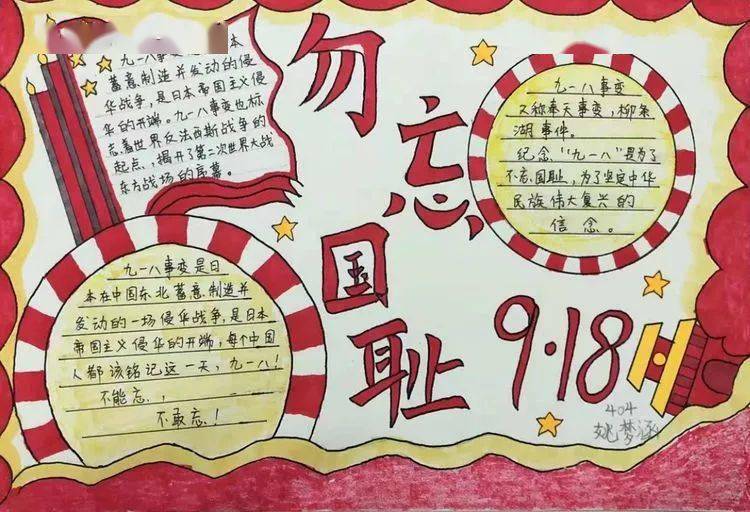 九一八事变 本
蓄意制造并发动的侵
华战争，是日本帝国主义侵
华的开端。九一八事变也标
志着世界反法西斯战争的
起点，揭开了第二次世界大战
东方战场的序幕。
勿
忘
国
耻
9·18
九一八事变
又称奉天事变，柳条
湖事件。
纪念“九一八”是为了
不忘国耻，为了坚定中华
民族伟大复兴的
信念。
九一八事变是日
本在中国东北蓄意制造并
发动的一场侵华战争，是日本
帝国主义侵华的开端，每个中国
人都该铭记这一天，九一八！
不能忘，
不敢忘！
404
姚梦涵